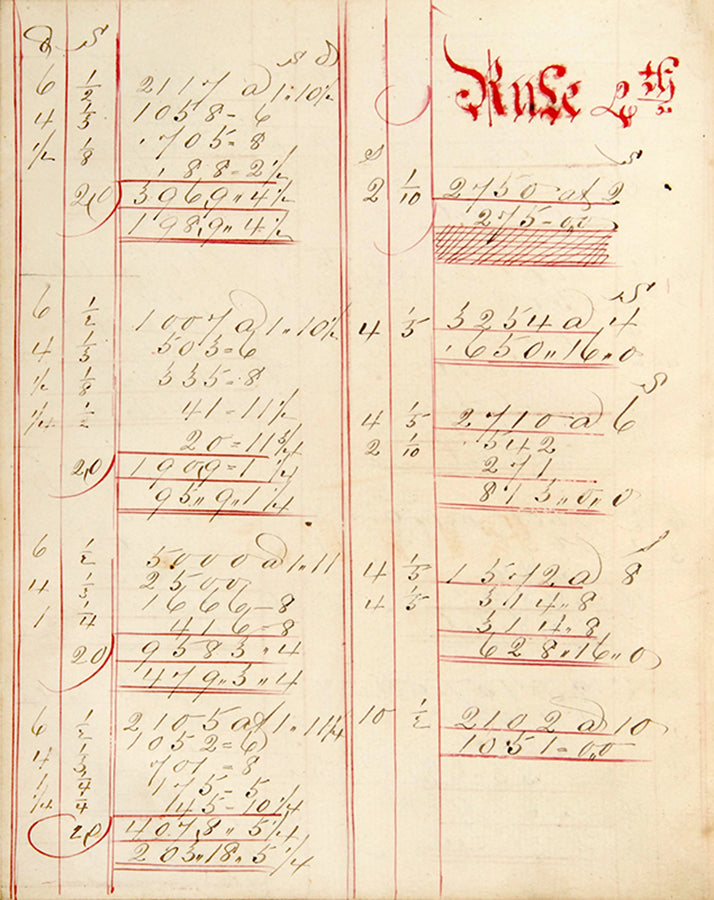 D S
S D
6 1/2 2117 a 1:10½
4 1/3 1058-6
½ 1/8 705=8
88=2½
2,0 396,9,,4½
198,,9,,4½
6 1/2 1007 a 1,,10¾
4 1/3 503=6
½ 1/8 335=8
¼ 1/2 41=11½
20=11¾
2,0 190,9=1¼
95,,9,,1¼
6 1/2 5000 a 1,,11
4 1/3 2500
1 1/4 1666-8
416=8
20 9583,,4
479,,3,,4
6 1/2 2105 at 1,,11¼
4 1/3 1052=6
1 1/4 701=8
¼ 1/4 175-5
145-10¼
2,0 407,8,,5¼
203,,18,,5¼
Rule 4th
S S
2 1/10 2750 at 2
275-0,,0
S
4 1/5 3254 a 4
650,,16,,0
S
4 1/5 2710 a 6
2 1/10 542
271
813,,0,,0
4 1/5 1572 a 8
4 1/5 314,,8
314,,8
628,,16,,0
10 1/2 2102 a 10
1051=0,,0